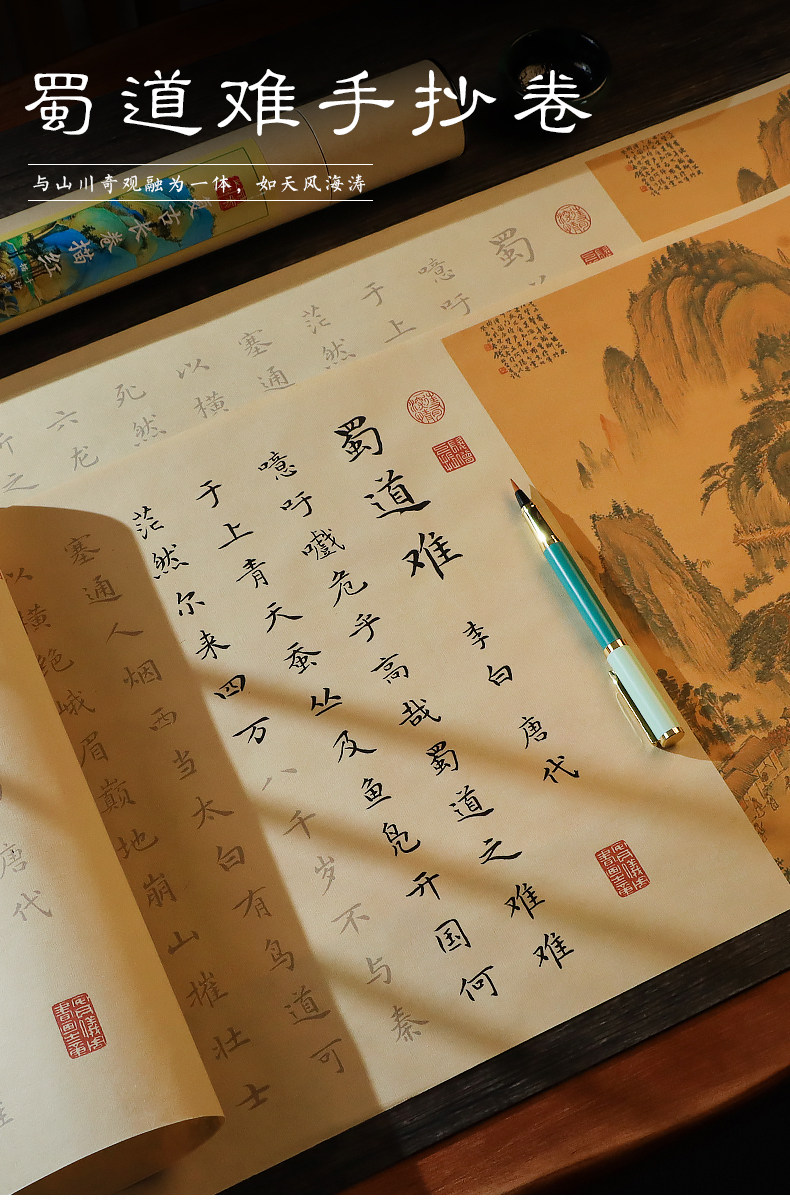 蜀道难手抄卷
与山川奇观融为一体，如天风海涛
复古长卷描红
蜀
噫吁
于上
茫然
塞通
以横
死然
六龙
之
蜀道难
李白 唐代
噫吁嚱危乎高哉蜀道之难难
于上青天蚕丛及鱼凫开国何
茫然尔来四万八千岁不与秦
塞通人烟西当太白有鸟道可
以横绝峨眉巅地崩山摧壮士
唐代